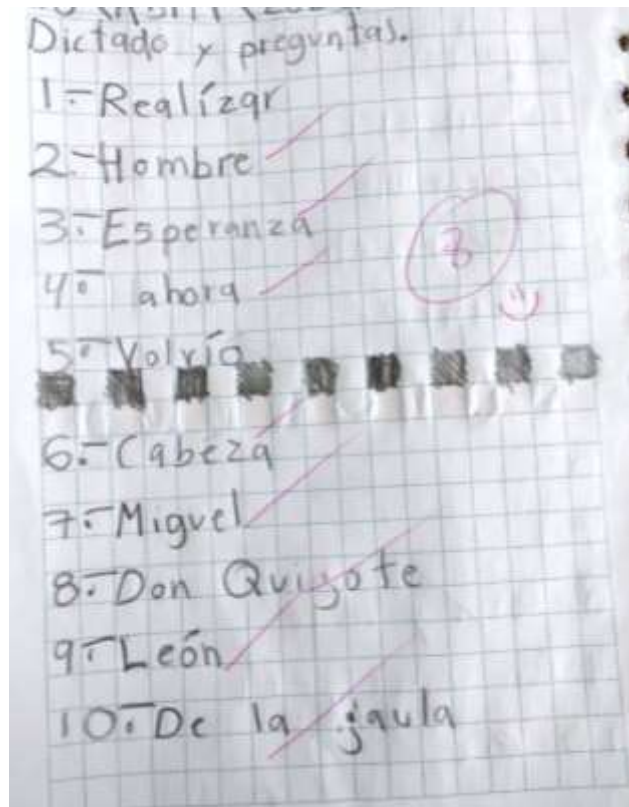 Dictado y preguntas.
1.-Realízar
2.-Hombre
3.-Esperanza
4.- ahora
8
5.-Volvío
6.-Cabeza
7.-Miguel
8.-Don Quijote
9.-León
10.-De la jaula